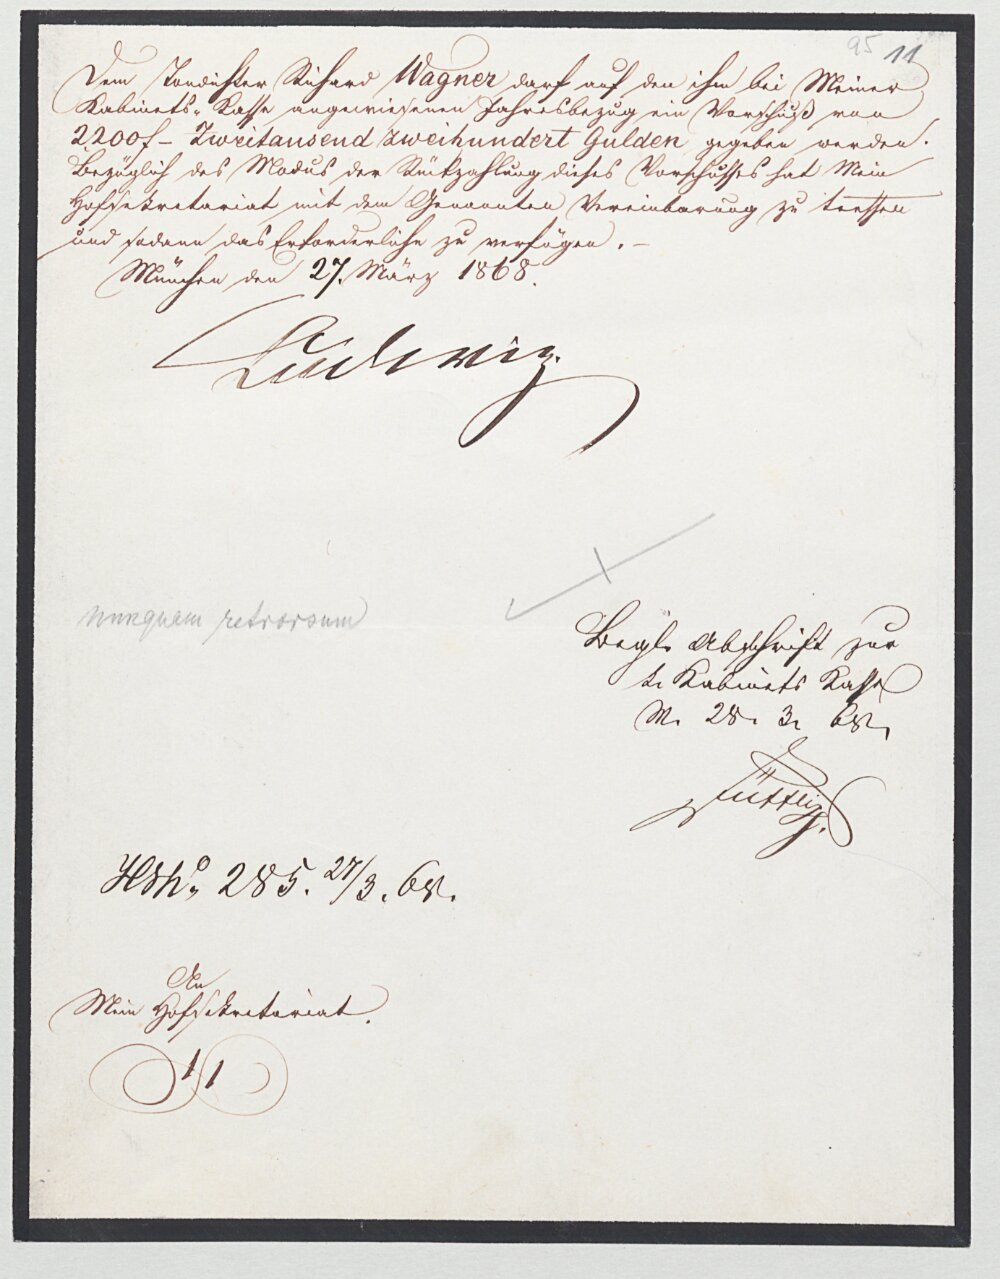 95 11
Dem Tondichter Richard Wagner darf auf den ihm bei Meiner
Kabinets-Kasse angewiesenen Jahresbezug ein Vorschuß von
2200 f – Zweitausend zweihundert Gulden gegeben werden.
Bezüglich des Modus der Rückzahlung dieses Vorschusses hat Mein
Hofsekretariat mit dem Genannten Vereinbarung zu treffen
und sodann das Erforderliche zu verfügen. –
München den 27. März 1868.
Ludwig
nunquam retrorsum
Begl. Abschrift zur
k. Kabinets Kasse
M. 28. 3. 68.
285. 27/3. 68.
An
Mein Hofsekretariat.